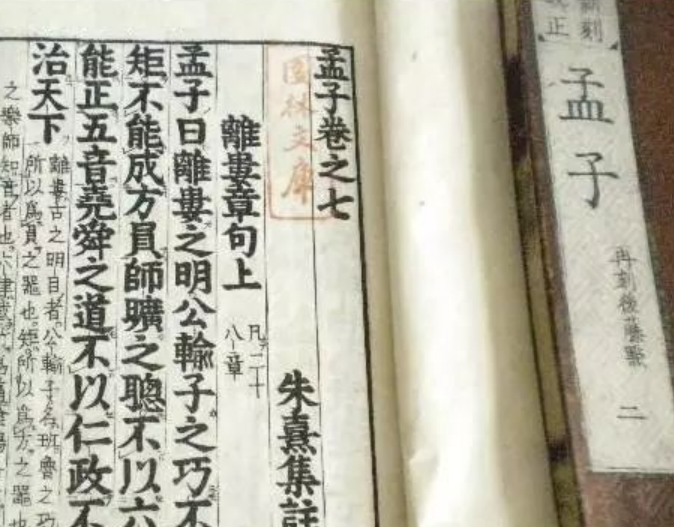 孟子卷之七
園林文庫
朱熹集註
離婁章句上
凡二十
八章
孟子曰離婁之明公輸子之巧不
矩不能成方員師曠之聰不以六
能正五音堯舜之道不以仁政不
治天下
離婁古之明目者公輸子名班魯之巧
所以爲員之器也矩所以爲方之器也
之樂師知音者也六律
孟子
再刻後藤點
二